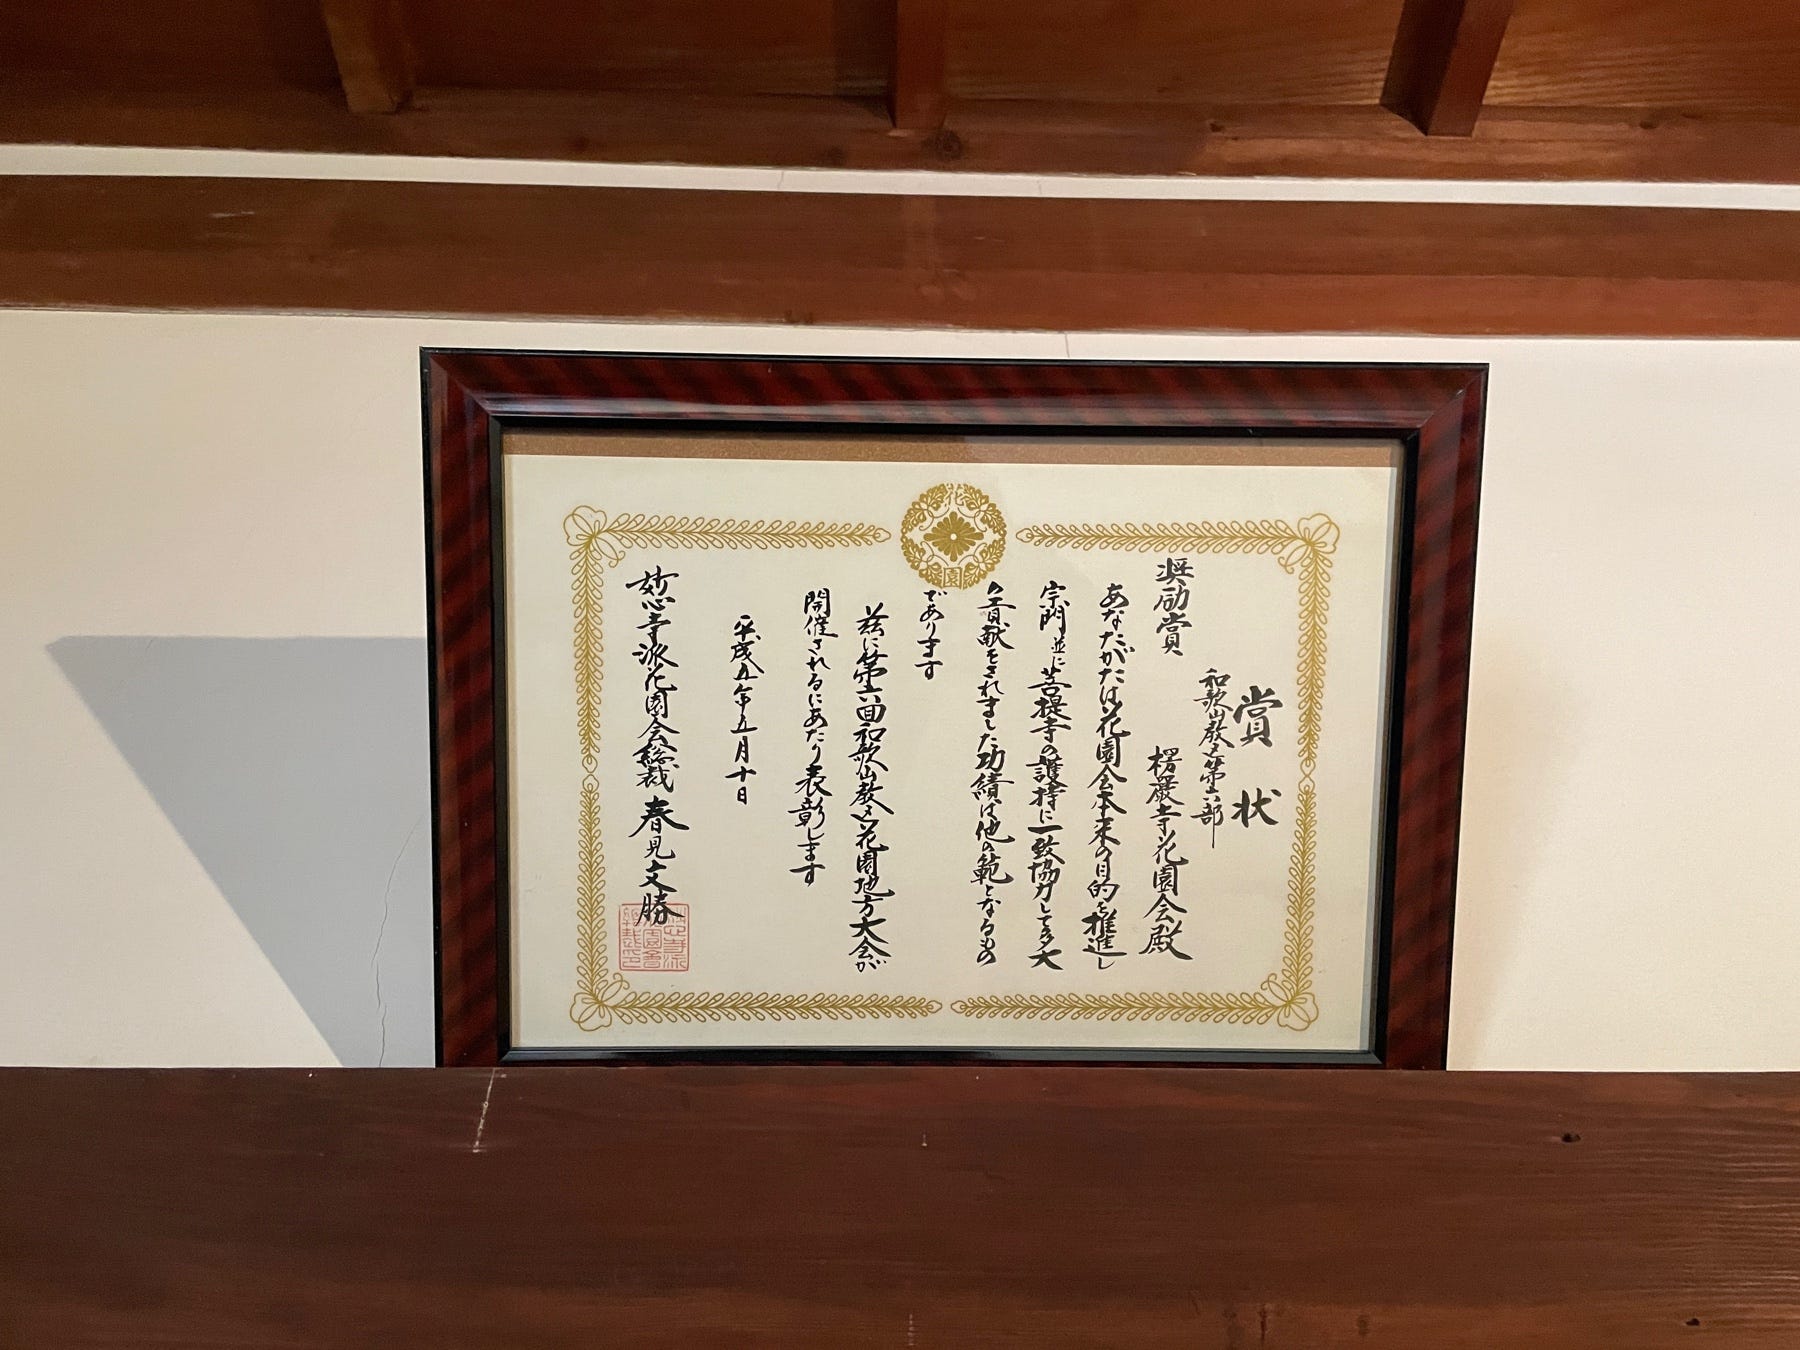 花
園
賞状
和歌山教区第六部
奨励賞 楞嚴寺花園会殿
あなたがたは花園会本来の目的を推進し
宗門並に菩提寺の護持に一致協力して多大
な貢献をされました功績は他の範となるもの
であります
茲に第六回和歌山教区花園地方大会が
開催されるにあたり表彰します
平成五年五月十日
妙心寺派花園会総裁 春見文勝